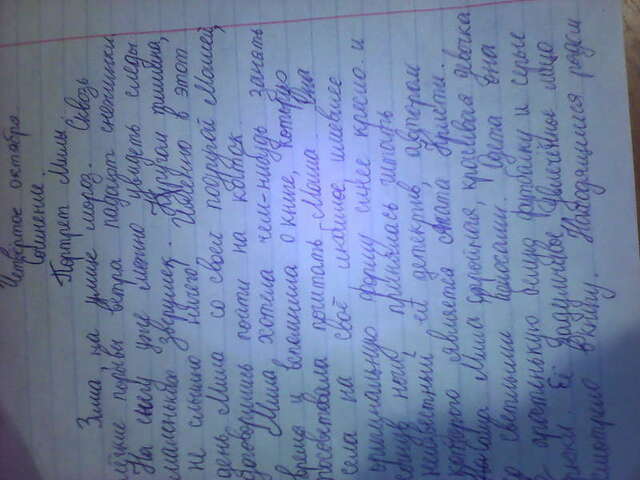 Четвёртое октября
Сочинение.
Портрет Милы
Зима, на улице мороз. Сквозь
лёгкие порывы ветра падают снежинки.
На снегу уже можно увидеть следы
маленьких зверушек. Кругом тишина,
не слышно ничего. Именно в этот
день Мила со своей подругой Машей,
договорились пойти на каток.
Мила хотела чем-нибудь занять
время и вспомнила о книге, которую
посоветовала почитать Маша. Она
села на своё любимое имевшее
оригинальную форму синее кресло и
согнув ноги, принялась читать
детектив, автором
которого является Агата Кристи.
Мила стройная, красивая девочка
со светлыми волосами. Одета она
в простенькую белую футболку и серые
брюки. Её задумчивое увлечённое лицо
смотрело в книгу. Находящиеся рядом